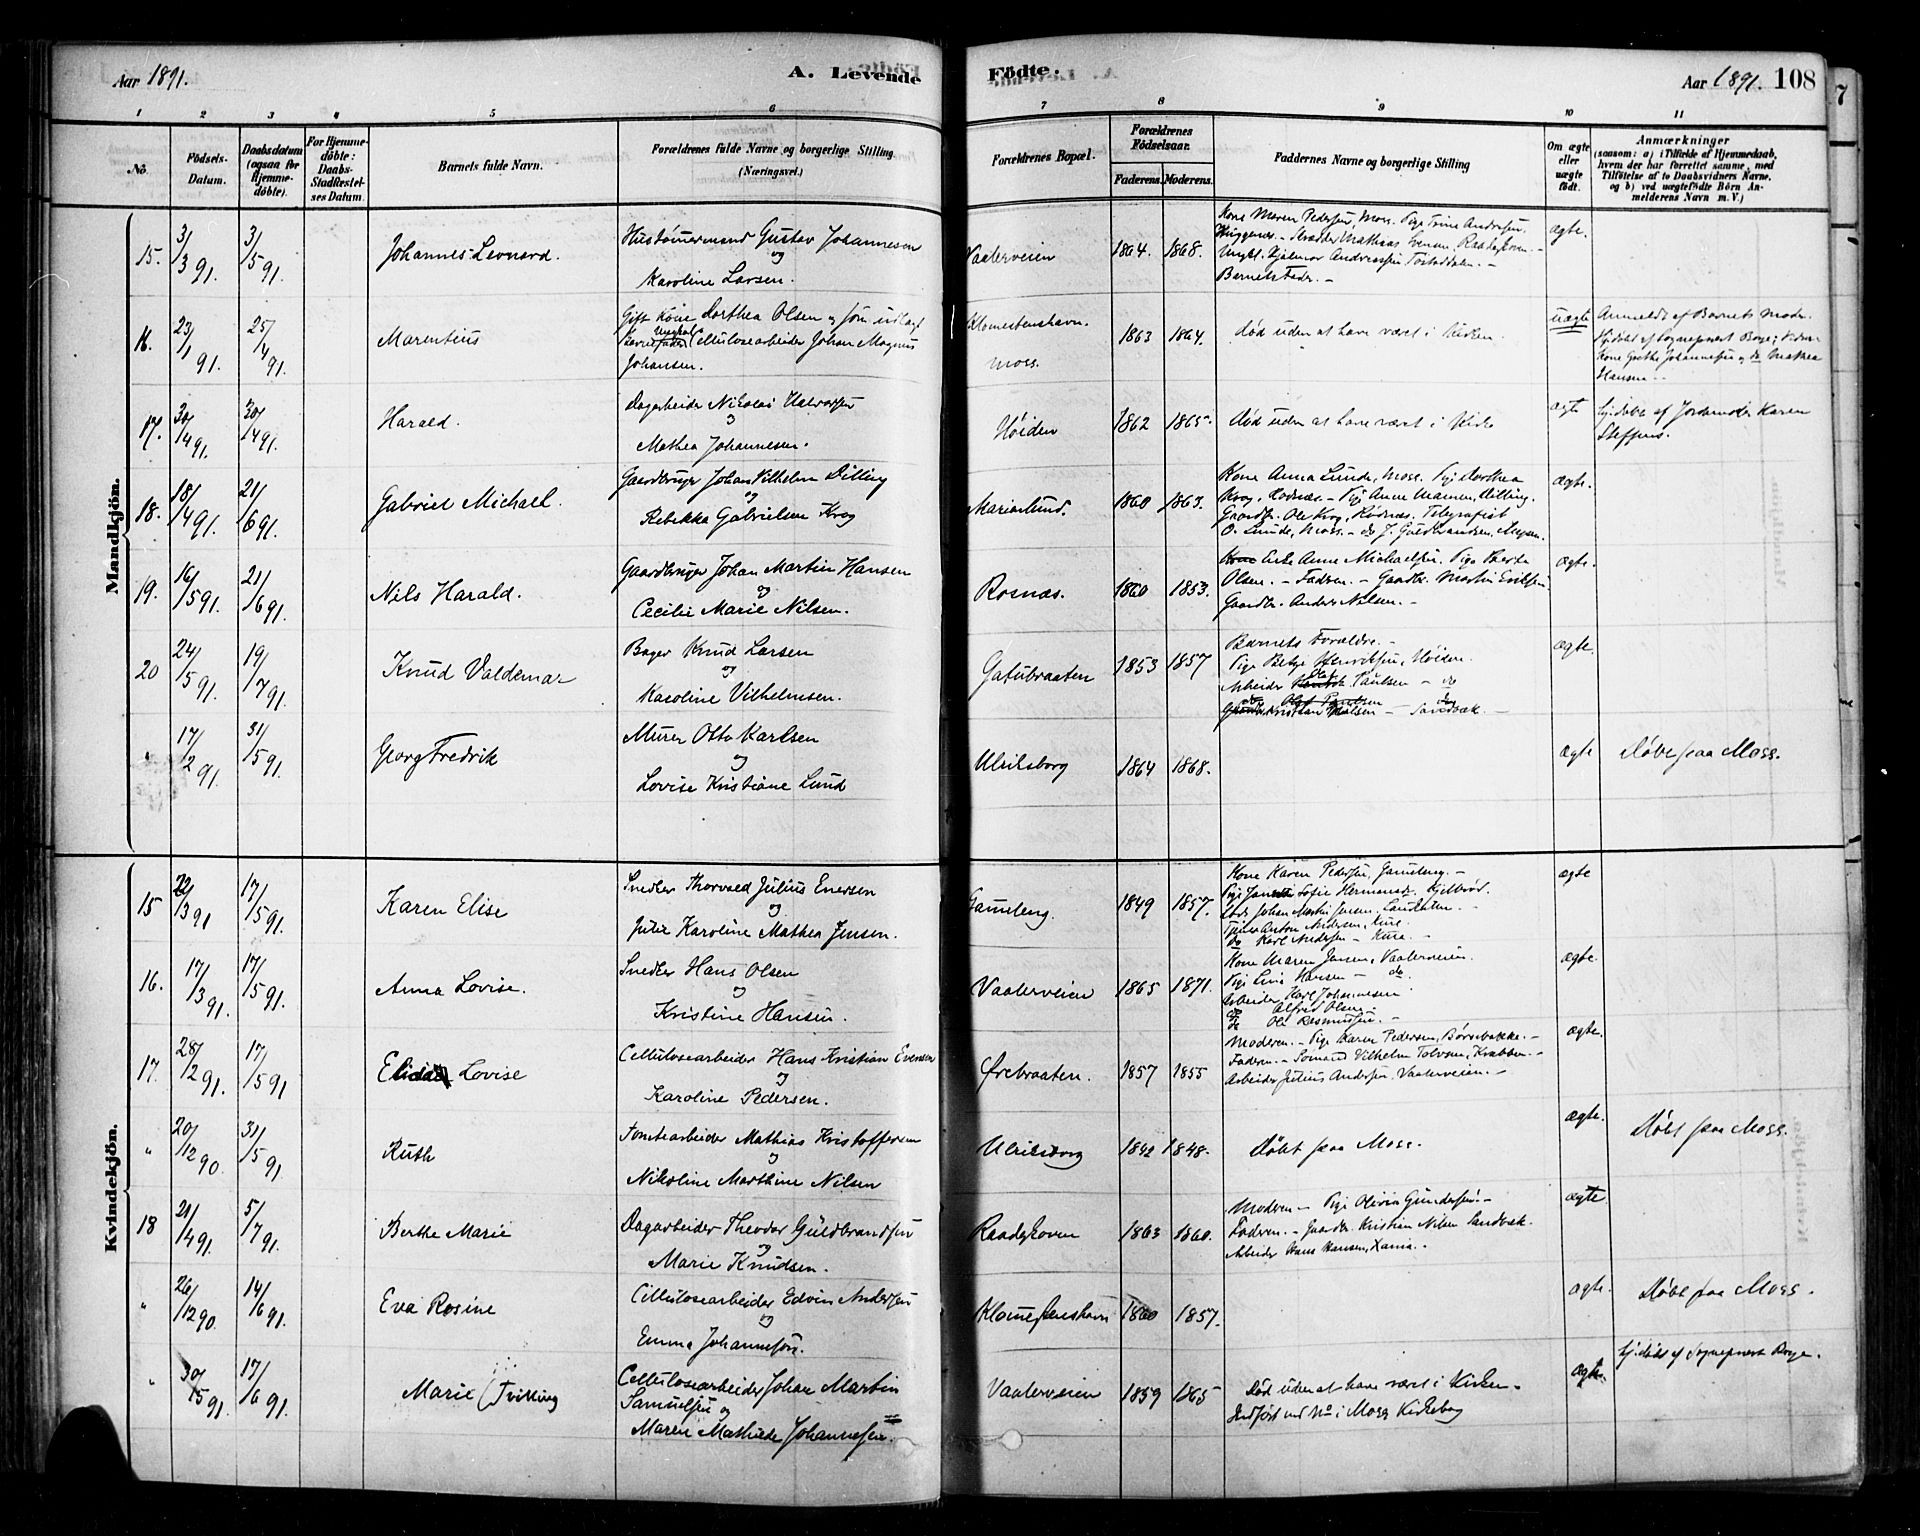 Aar 1891.
A. Levende
Födte.
Aar 1891. 108
1 2 3 4 5 6 7 8 9 10 11
No.
Födsels-
Datum.
Daabsdatum
(ogsaa for
Hjemme-
döbte).
For Hjemme-
döbte:
Daabs-
Stadfæstel-
ses Datum.
Barnets fulde Navn.
Forældrenes fulde Navne og borgerlige Stilling
(Næringsvei.)
Forældrenes Bopæl.
Forældrenes
Födselsaar.
Faderens. Moderens.
Faddernes Navne og borgerlige Stilling
Om ægte
eller
uægte
födt.
Anmærkninger
(saasom: a) i Tilfælde af Hjemmedaab,
hvem der har forrettet samme, med
Tilföielse af to Daabsvidners Navne,
og b) ved uægtefödte Börn An-
melderens Navn m. V.)
Mandkjön.
15. 3/3 91. 3/5 91. Johannes Leonard.
Hustømermand Gustav Johannesen
og
Karoline Larsen.
Vaalerveien 1864. 1868.
Kone Maren Pedersen, Moss. Pige Trine Andersen
Huggenes. - Skrædder Mathias Evensen, Raadeskoven. -
Ungk. Hjalmar Andreassen
Barnets Fader. -
ægte.
16. 23/1 91. 25/4 91. Marentius
Gift Kone Dorthea Olsen og som udlagt
Barnefader Ungkarl Cellulosearbeider Johan Magnus
Johansen.
Moss.
1863 1864.
død uden at have været i Kirken.
uægte
Anmeldt af Barnets Moder
Hjdøbt af Sognepræst Borge; Vidner
Kone Grethe Johannesen og do Mathea
Hansen. -
17. 30/4 91. 30/4 91. Harald.
Dagarbeider Nikolai Halvorsen
og
Mathea Johannesen.
Høiden 1862 1865
død uden at have været i Kirke
ægte
Hjdøbt af Jordemoder Karen
Steffens.
18. 18/4 91. 21/6 91. Gabriel Michael.
Gaardbruger Johan Vilhelm Dilling
og
Rebekka Gabrielsen Krog
Marielund. 1860 1863.
Kone Anna Lunde, Moss. Pige Dorthea
Krog, Rødnæs. - Pige Anne Mamen, Dilling.
Gaardbr. Ole Krog, Rødnæs. Telegrafist
O. Lunde, Moss. - do J. Guldbrandsen, Mysen.
ægte.
19. 16/5 91. 21/6 91. Nils Harald.
Gaardbruger Johan Martin Hansen
og
Cecilie Marie Nilsen.
Rosnæs. 1860 1853.
Kone Enke Anne Michaelsen. Pige Berta
Olsen. - Faderen. - Gaardbr. Martin Eriksen
Gaardbr. Anders Nilsen. -
ægte.
20 24/5 91. 19/7 91. Knud Valdemar
Bager Knud Larsen
og
Karoline Vilhelmsen.
Gatubraaten 1853 1857
Barnets Forældre. -
Pige Betzy Henriksen, Høiden.
Arbeider Paulsen - do
Kristian Nilsen - Sandbæk. -
ægte.
" 17/2 91. 31/5 91. Georg Fredrik
Murer Otto Karlsen
og
Lovise Kristiane Lund
Ulriksborg 1864 1868.
ægte
Døbt paa Moss.
Kvindekjön.
15 22/3 91 17/5 91. Karen Elise
Snedker Thorvald Julius Enersen
og
Julie Karoline Mathea Jensen.
Gameleng. 1849 1857.
Kone Karen Pedersen, Gameleng. -
Pige Sofie Hermansd. Kjelbrød.
Johan Martin Jensen,
Tjener Anton Andersen, Kure.
do Karl Andersen - Kure. -
ægte
16. 17/3 91. 17/5 91. Anna Lovise.
Snedker Hans Olsen
og
Kristine Hansen.
Vaalerveien 1865 1871.
Kone Maren Jensen, Vaalerveien.
Pige Lina Hansen - do.
Arbeider Karl Johannesen
do Alfred Olsen -
do Ole Rasmussen. -
ægte.
17. 28/2 91. 17/5 91 Elida Lovise
Cellulosearbeider Hans Kristian Evensen
og
Karoline Pedersen.
Ørebraaten. 1857 1855
Moderen. - Pige Karen Pedersen, Børsebakke. -
Faderen. - Sømand Vilhelm Tolvsen, Krabben. -
Arbeider Julius Andersen. Vaalerveien. -
ægte.
" 20/12 90. 31/5 91. Ruth
Tomtearbeider Mathias Kristoffersen
og
Nikoline Marthine Nilsen
Ulriksborg 1842 1848.
Døbt paa Moss.
ægte.
Døbt paa Moss.
18 21/4 91. 5/7 91. Berthe Marie
Dagarbeider Theodor Guldbrandsen
og
Marie Knudsen.
Raadeskoven 1863 1860.
Moderen - Pige Olivia Gundersen. -
Faderen. - Gaardbr. Kristian Nilsen Sandbæk.
Arbeider Hans Hansen, Xania. -
ægte
" 26/12 90. 14/6 91. Eva Rosine
Cellulosearbeider Edvin Andersen
og
Emma Johannessen.
1860 1857.
ægte.
Døbt paa Moss.
" 30/5 91. 17/6 91. Marie (Tvilling
Cellulosearbeider Johan Martin
Samuelsen og
Maren Mathilde Johannesen.
Vaalerveien 1859 1865
Død uden at have været i Kirken.
Indført ved No i Moss Kirkebog
ægte.
Hjdøbt af Sognepræst Borge.